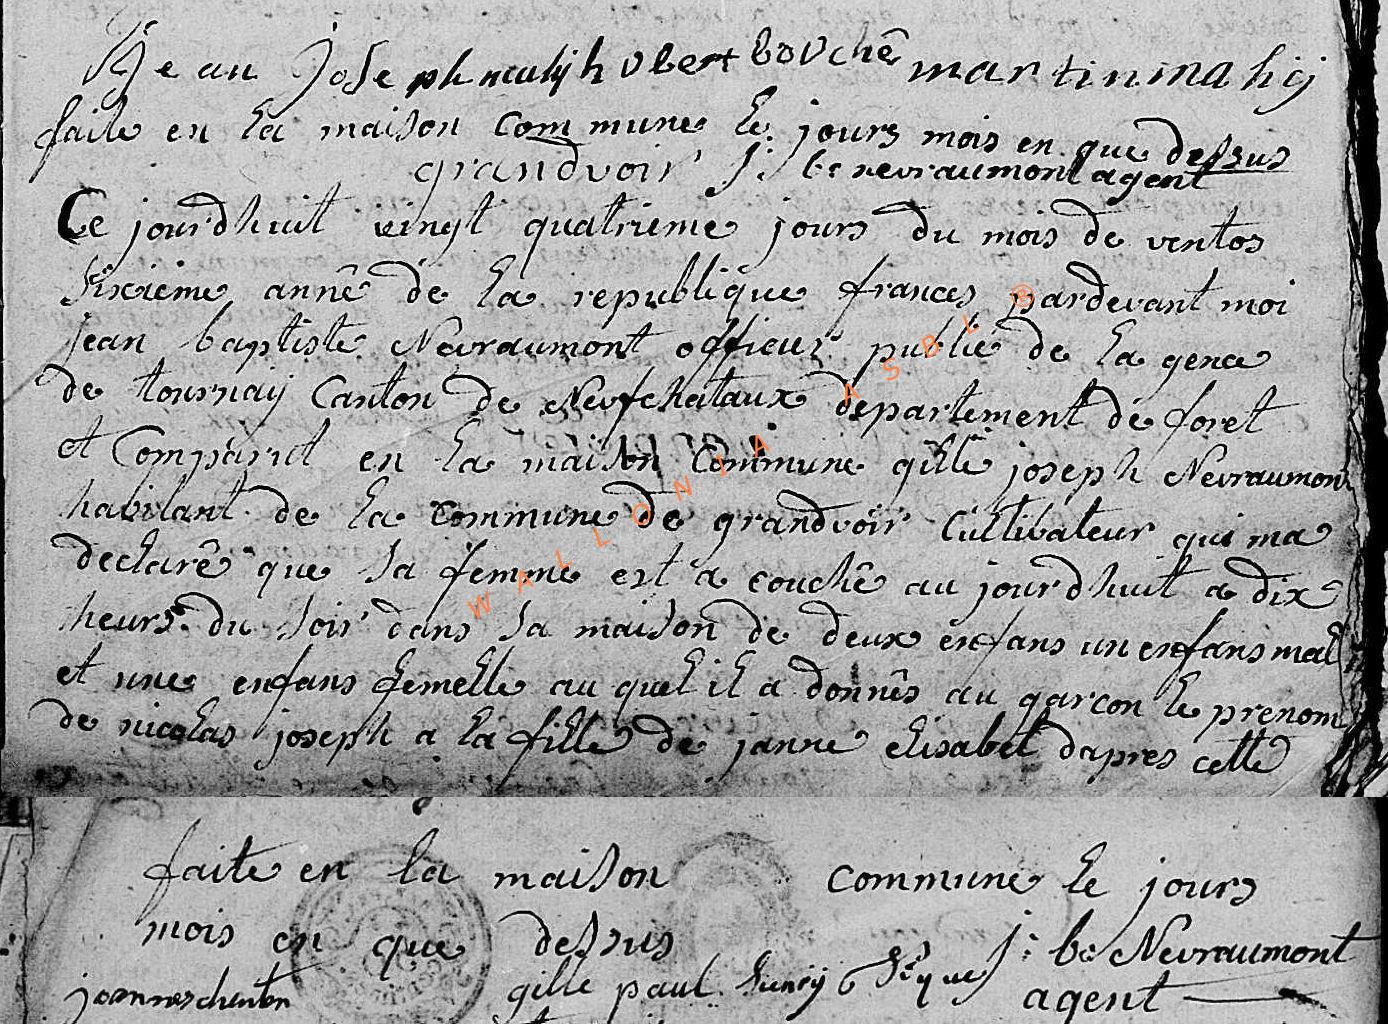 jean joseph hubert bovchê martin mahij
faite en la maison commune le jours mois en que dessus
grandvoir j: b: nevraumont agent
Ce jourdhuit vingt quatrieme jours du mois de ventos
sixieme annê de la republique frances pardevant moi
jean baptiste Nevraumont officier publie de la gence
de tournaij Canton de Neufchataux departement de foret
et Comparut en la maison Commune gille joseph Nevraumont
habitant de la commune de grandvoir Cultivateur qui ma
declarê que sa femme est a couchê au jourdhuit a dix
heurs du soir dans sa maison de deux enfans un enfans mal
et une enfans femelle au quel il a donnês au garcon le prenom
de nicolas joseph a la fille de janne elisabet dapres cette
faite en la maison commune le jours
mois en que dessus j: b: Nevraumont
gille paul agent
WALLONIA ASBL ®